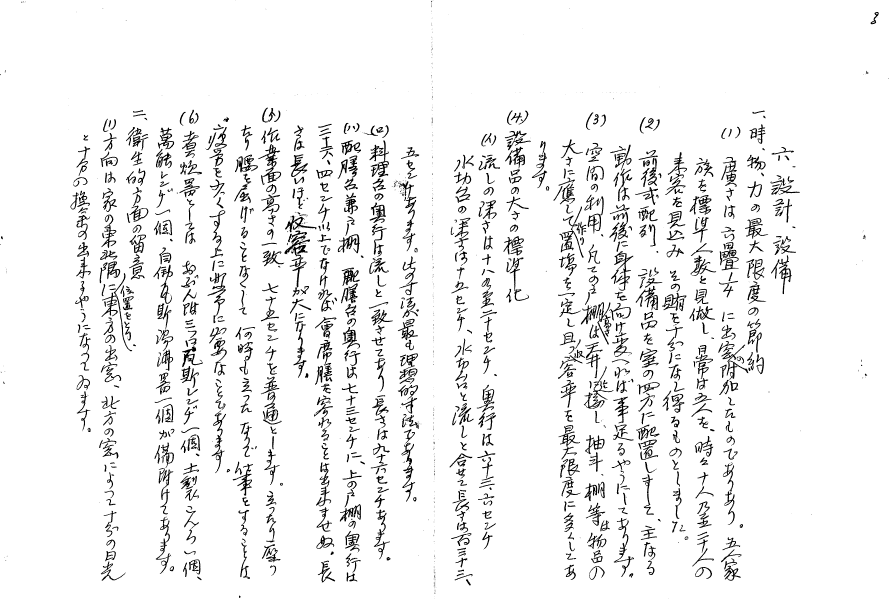 3
六、設計、設備
一、時、物、力の最大限度の節約
(1) 廣さは六疊1/4に出窓の附加したものであり、五人家
族を標準人数と見做し、日常は五人を、時々十人乃至二十人の
来客を見込み その賄を十分になし得るものとしました。
(2) 前後式配列、設備品を室の四方に配置しまして、主なる
動作は前後に身体を向け変へれば事足るやうにしてあります。
(3) 空間の利用、凡ての戸棚は天井に接し、抽斗、棚等は物品の
大さに應じて作り置場を一定し且つ收容率を最大限度に多くしてあ
ります。
(4) 設備品の大さの標準化
(イ) 流しの深さは十八乃至二十センチ、奥行は六十三・六センチ
水切台の深さは十五センチ、水切台と流しと合せて長さは百三十三、
五センチあります。此の寸法が最も理想的寸法であります。
(ロ) 料理台の奥行は流しと一致させてあり 長さは九十六センチあります。
(ハ) 配膳台兼戸棚、配膳台の奥行は七十三センチに、上の戸棚の奥行は
三十六、四センチ以上でなければ會席膳を容れることは出来ませぬ。長
さは長いほど收容率が大になります。
(5) 作業面の高さの一致、七十五センチを普通とします。立つたり座つ
たり腰を屈げることなくして 何時も立つたなりで仕事をすることは
疲労を少くする上に非常に必要なことであります。
(6) 煮炊器としては おぶん附三口瓦斯レンヂ一個、土製こんろ一個、
萬能レンヂ一個、自働瓦斯湯沸器一個が備附けてあります。
二、衛生的方面の留意
(1) 方向は家の東北隅に位置をとり、東方の出窓、北方の窓によつて十分の日光
と十分の換氣の出来るやうになつてゐます。